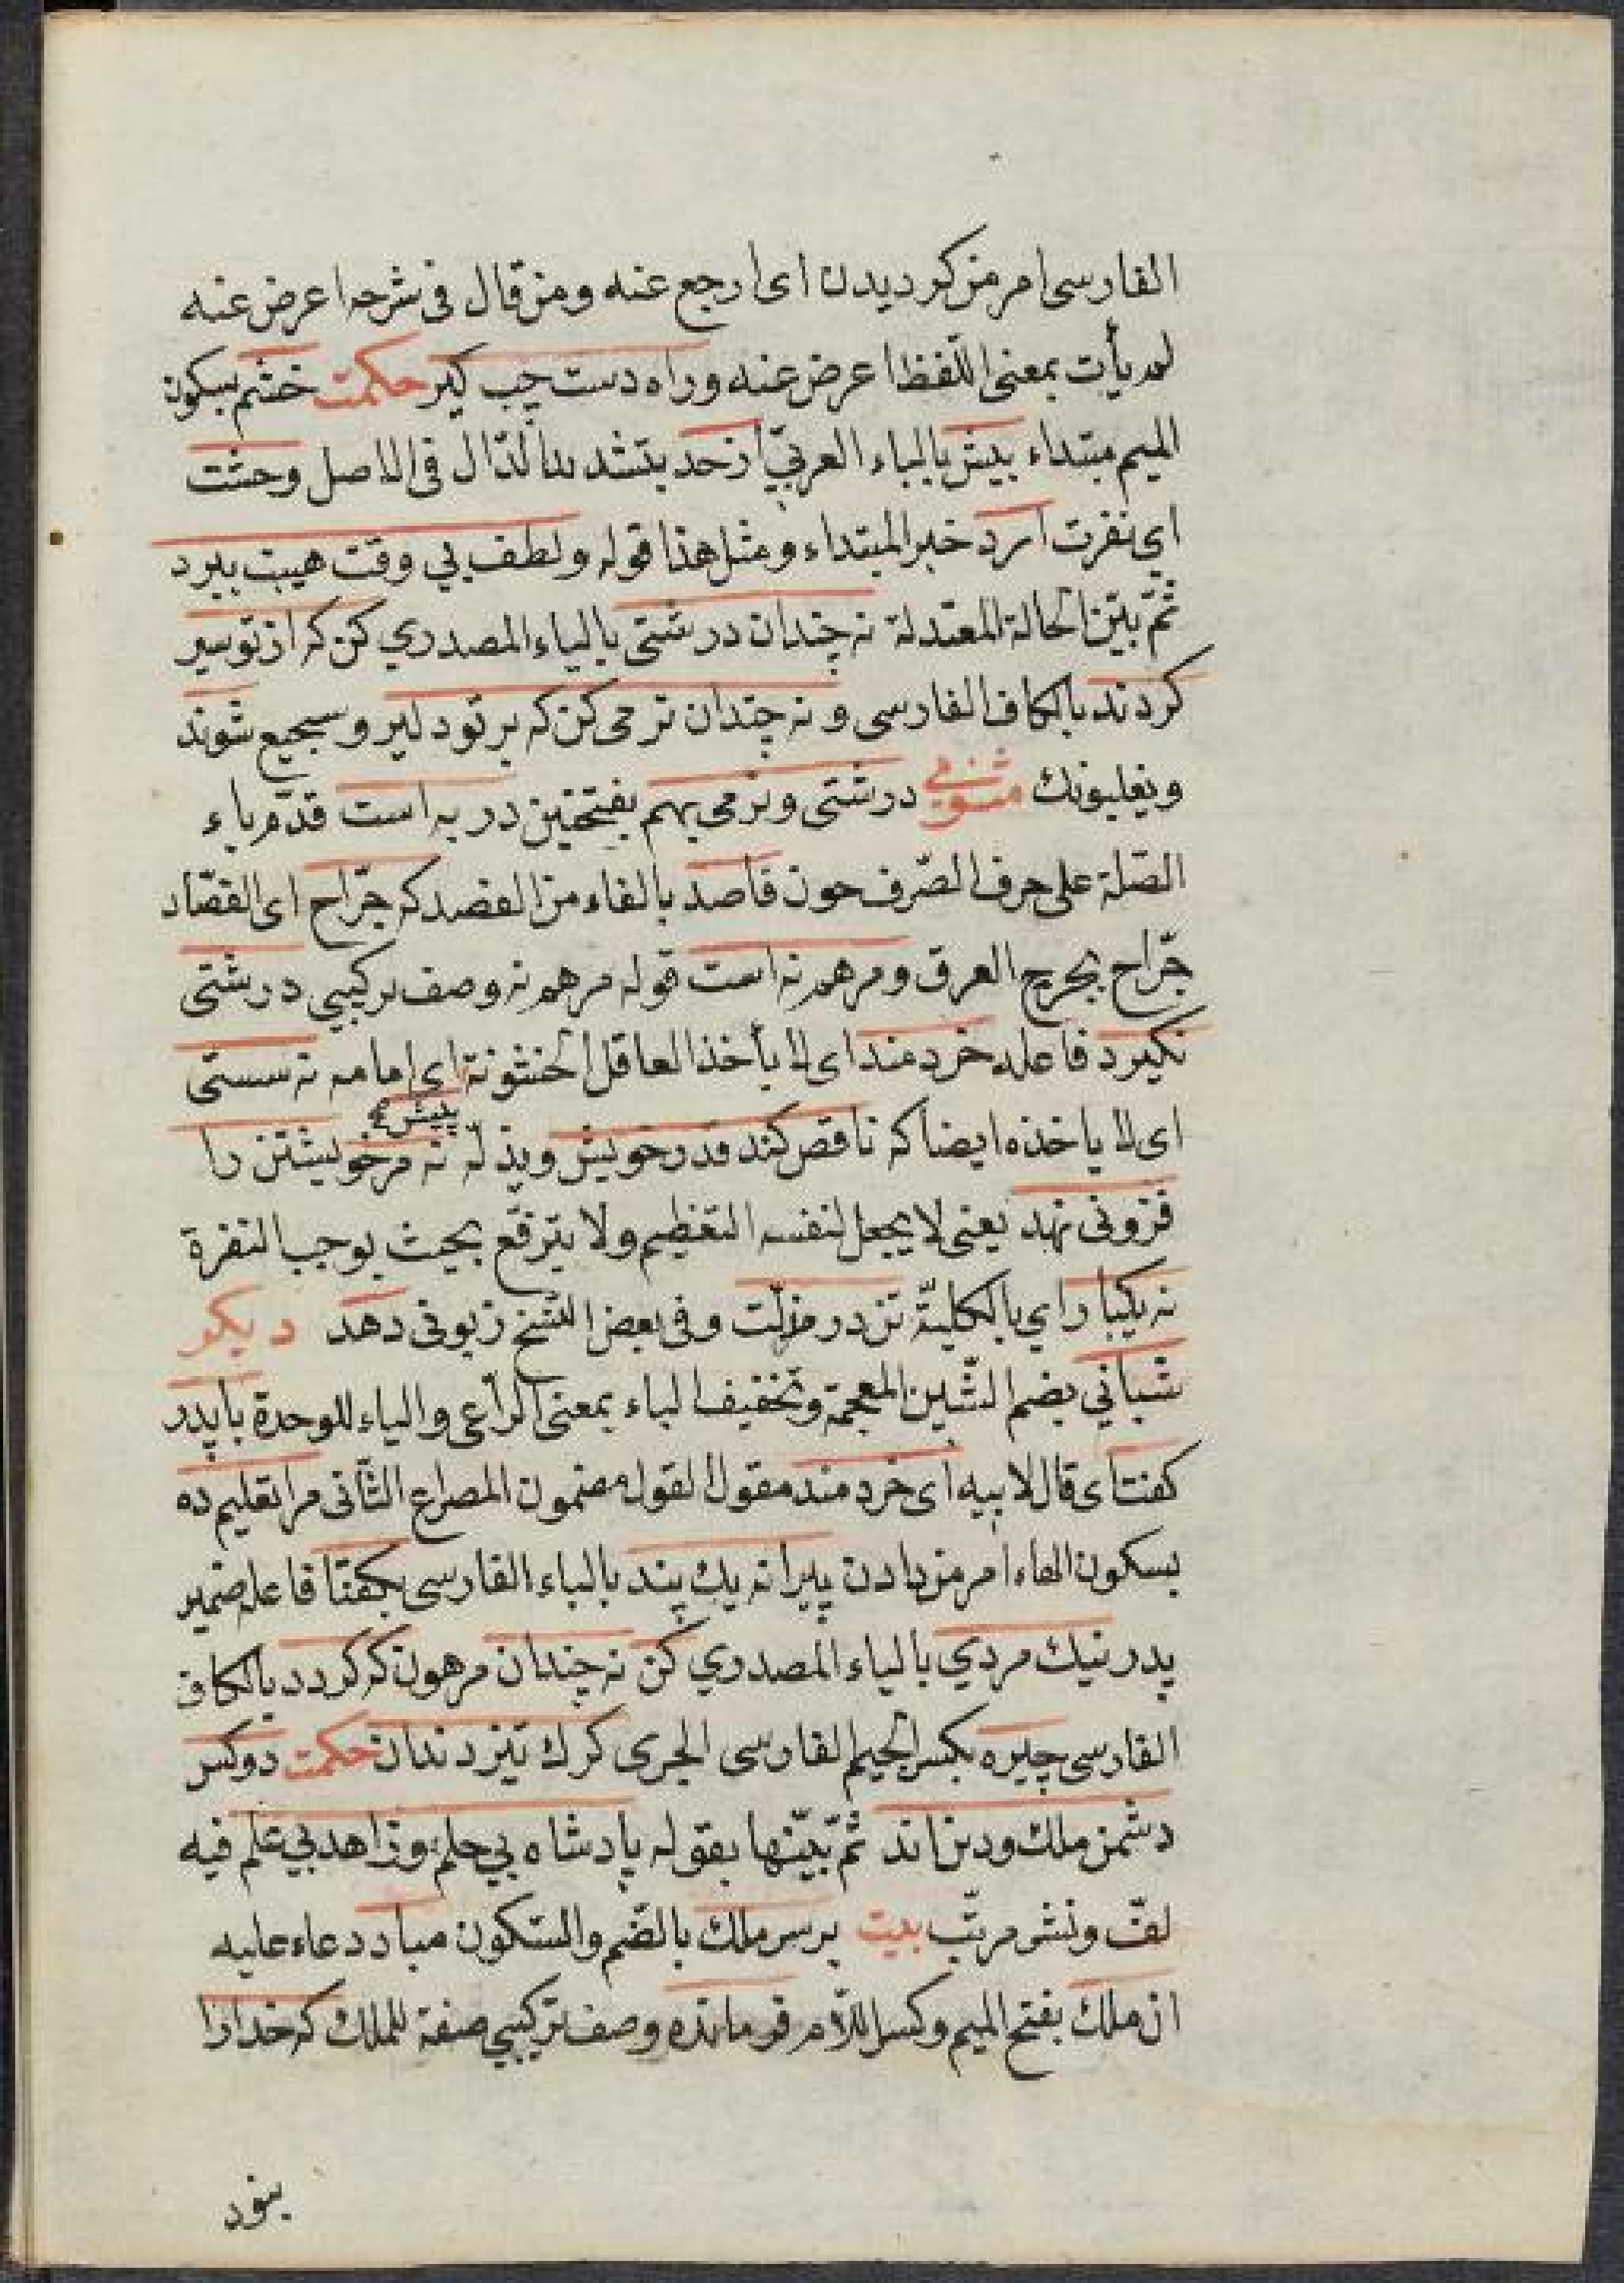 الفارسی امر من کردیدن ای ارجع عنه ومن قال فی شرحه اعرض عنه
لم یأت بمعنی اللّفظ اعرض عنه وراه دست چپ کیر حکمت خشم بسکون
المیم مبتداء بیش بالباء العربیّ از حد بتشدید الدّال فی الاصل وحشت
ای نفرت آرد خبر المبتداء ومثل هذا قوله ولطف بی وقت هیبت ببرد
ثمّ بیّن الحالة المعتدلة نه چندان درشتی بالیاء المصدری کن که از تو سیر
کردند بالکاف الفارسی ونه چندان نرمی کن که بر تو دلیر وسجیع شوند
ویغلبونك مثنوی درشتی ونرمی بهم بفتحتین در به است قدّم باء
الصّلة علی حرف الصّرف چون فاصد بالفاء من الفصد که جرّاح ای الفصّاد
جرّاح یجرح العرق ومرهم نه است قوله مرهم نه وصف ترکیبی درشتی
نکیرد فاعله خردمند ای لا یأخذ العاقل الخشونة ای امامه نه سستی
پیش
ای لا یاخذه ایضا که ناقص کند قدر خویش ویذلّه نه مر خویشتن را
فزونی نهد یعنی لا یجعل لنفسه التعظیم ولا یترفّع بحیث یوجب النفرة
نه یکبار ای بالکلیّة تن در مذلّت وفی بعض النّسخ زبونی دهد دیکر
شبانی بضم الشّین المعجمة وتخفیف الباء بمعنی الرّاعی والیاء للوحدة با پدر
کفت ای قال لابیه ای خردمند مقول القول مضمون المصراع الثّانی مرا تعلیم ده
بسکون الهاء امر من دادن پیرانه یك پند بالباء الفارسی بکفتا فاعله ضمیر
پدر نیك مردی بالیاء المصدری کن نه چندان مرهون که کردد بالکاف
الفارسی چیره بکسر الجیم الفارسی الجری کرك تیز دندان حکمت دو کس
دشمن ملك ودین اند ثمّ بیّنها بقوله پادشاه بی حلم وزاهد بی علم فیه
لفّ ونشر مرتّب بیت بر سر ملك بالضّم والسّکون مباد دعاء علیه
ان ملك بفتح المیم وکسر اللّام فرمانده وصف ترکیبی صفة للملك که خدا را
بنود